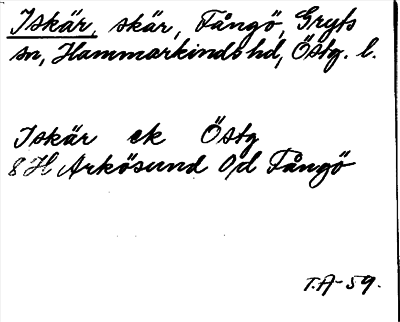 Iskär, skär, Fångö, Gryts
sn, Hammarkinds hd, Östg. l.
Iskär ek Östg
8 H Arkösund Od Fångö
T.A-59.